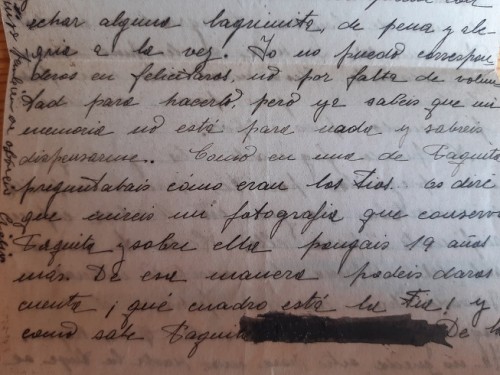 echar alguna lagrimita, de pena y ale
gria a la vez. Yo no puedo correspon
deros en felicitaros, no por falta de volun
tad para hacerlo, pero ya sabeis que mi
memoria no está para nada y sabreis
dispensarme.. Como en una de Paquita
preguntabais cómo eran los Tios. os diré
que envieis mi fotografia que conserva
Paquita y sobre ella pongais 19 años
más. De esa manera podeis daros
cuenta ¡qué cuadro está la Tia! y
como sabe Paquita De la